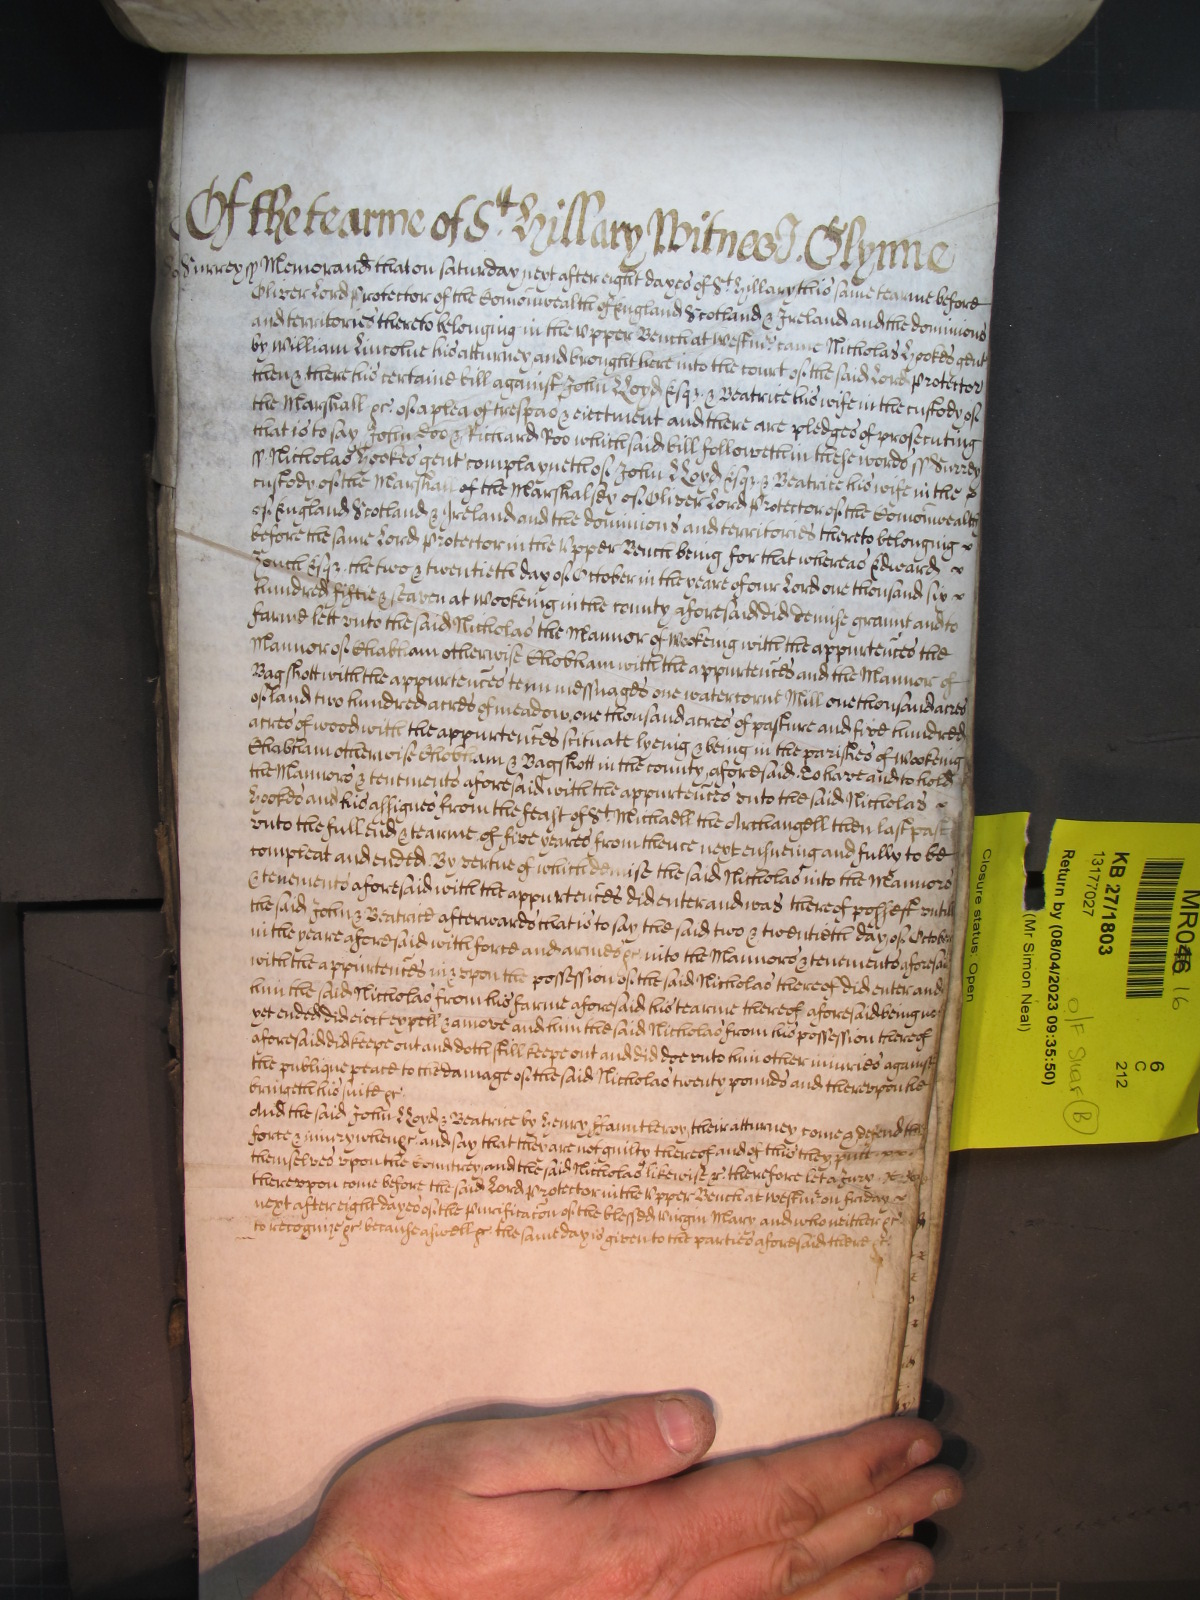 Of the tearme of St. Hillary Witnes J. Glynne
Surrey ss Memorand that on saturday next after eight dayes of St. Hillary this same tearme before
Oliver Lord Protector of the Comonwealth of England Scotland & Ireland and the dominions
and territories thereto belonging in the Upper Bench at Westmr. came Nicholas Hookes gent
by William Lincolne his atturney and brought here into the court of the said Lord Protector
then & there his certaine bill against John Lloyd Esqr. & Beatrice his wife in the custody of
the Marshall &c. of a plea of trespas & eiectment and there are pledges of prosecuting
that is to say John Doo & Richard Roo which said bill followeth in these words ss Surrey
ss Nicholas Hookes gent complayneth of John Lloyd Esqr. & Beatrice his wife in the
custody of the Marshall of the Marshalsey of Oliver Lord Protector of the Comonwealth
of England Scotland & Ireland and the dominions and territories thereto belonging
before the same Lord Protector in the Upper Bench being for that whereas Edward
Zouch Esqr. the two & twentieth day of October in the yeare of our Lord one thousand six
hundred fiftie & seaven at Wookeing in the county aforesaid did demise graunt and to
farme lett unto the said Nicholas the Mannor of Wookeing with the appurtences the
Mannor of Chabham otherwise Chobham with the appurtences and the Mannor of
Bagshott with the appurtences tenn messuages one watercorne Mill one thousand acres
of land two hundred acres of meadow one thousand acres of pasture and five hundred
acres of wood with the appurtences scituate lyeing & being in the parishes of Wookeing
Chabham otherwise Chobham & Bagshott in the county aforesaid. To have and to hold
the Mannors & tenements aforesaid with the appurtences unto the said Nicholas
Hookes and his assignes from the feast of St. Michaell the Archangell then last past
unto the full end & tearme of five yeares from thence next ensueing and fully to be
compleat and ended. By vertue of which demise the said Nicholas into the Mannors
& tenements aforesaid with the appurtences did enter and was thereof possest untill
the said John & Beatrice afterwards that is to say the said two & twentieth day of October
in the yeare aforesaid with force and armes &c. into the Mannors & tenements aforesaid
with the appurtences in & upon the possession of the said Nicholas thereof did enter and
him the said Nicholas from his farme aforesaid his tearme thereof aforesaid being not
yet ended did eiect expell & amove and him the said Nicholas from his possession thereof
aforesaid did keepe out and doth still keepe out and did doe unto him other iniuries against
the publique peace to the damage of the said Nicholas twenty pounds and thereupon he
bringeth his suite &c.
And the said John Lloyd & Beatrice by Henry ffauntleroy their atturney come & defend the
force & iniury when &c. and say that they are not guilty thereof and of this they putt
themselves upon the Countrey and the said Nicholas likewise &c. therefore let a Jury
thereupon come before the said Lord Protector in the Upper Bench at Westmr. on friday
next after eight dayes of the Purificacon of the blessed Virgin Mary and who neither &c.
to recognize &c. because aswell &c. the same day is given to the parties aforesaid there &c.
MR046
16
KB 27/1803
13177027
Return by (08/04/2023 09:35:50)
(Mr Simon Neal)
Closure status: Open
6
C
212
B